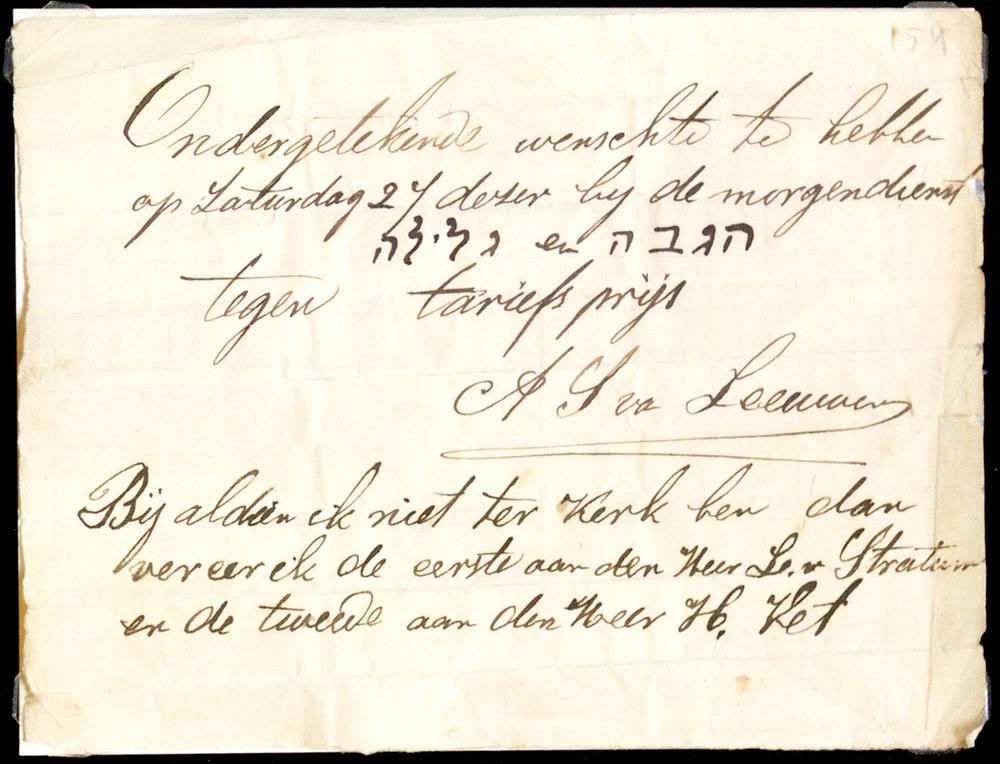 154
Ondergetekende wenschte te hebben
op Zaturdag 27 dezer bij de morgendienst
הגבה en גלילה
tegen tariefs prijs
A S va Leeuwen
Bij aldien ik niet ter Kerk ben dan
vereer ik de eerste aan den Heer L. v Stratum
en de tweede aan den Heer H. Ket